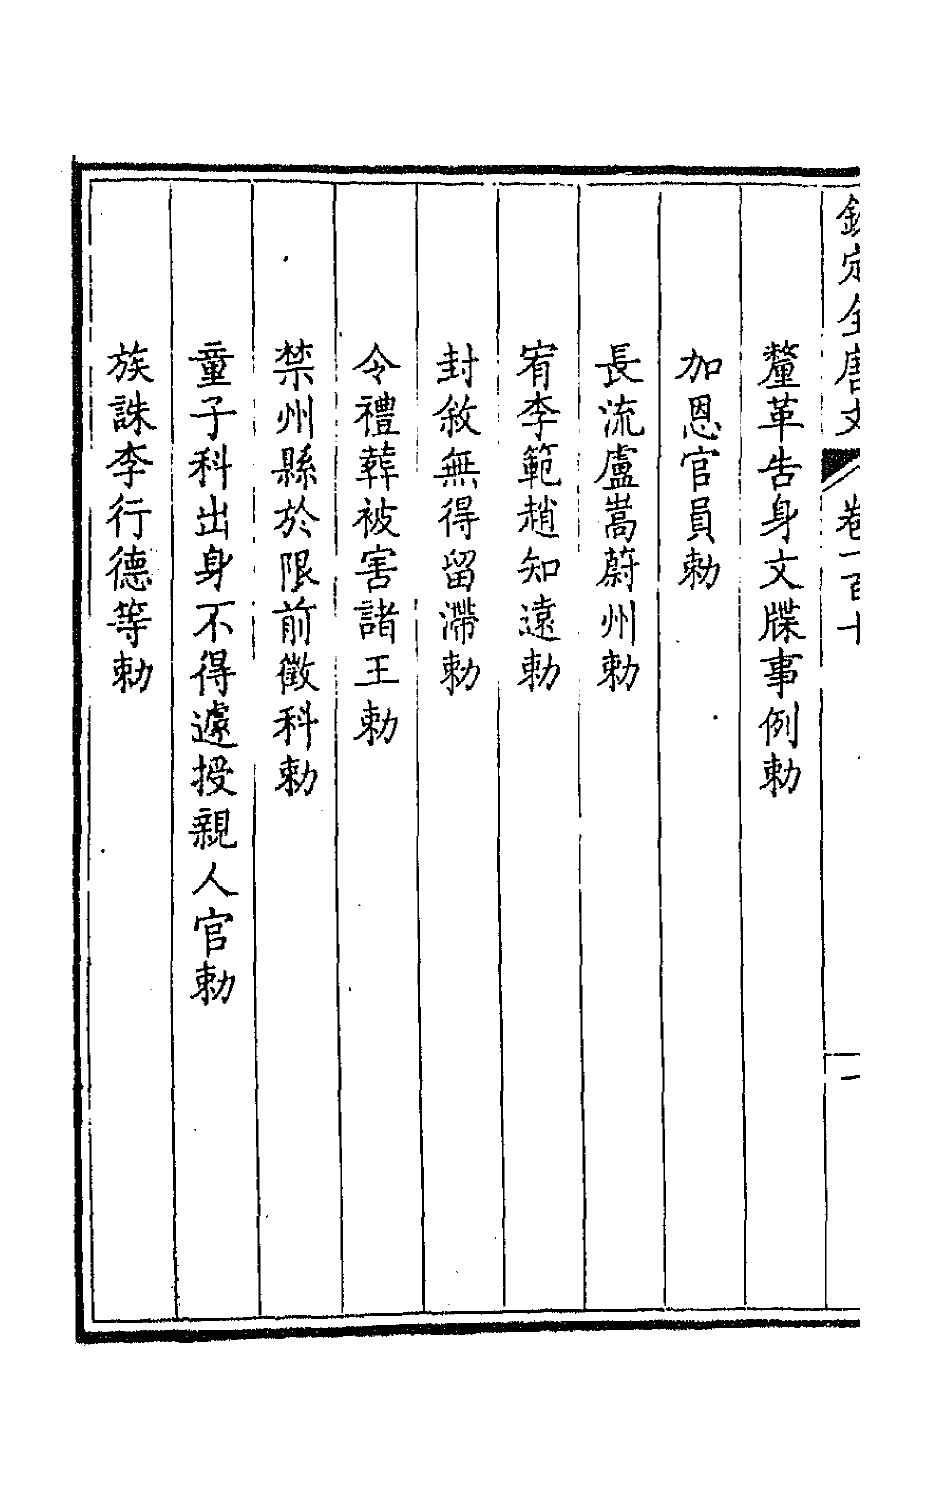 欽定全唐文 卷一百十 一
釐革告身文牒事例勅
加恩官員勅
長流盧嵩蔚州勅
宥李範趙知遠勅
封敘無得留滯勅
令禮葬被害諸王勅
禁州縣於限前徵科勅
童子科出身不得遽授親人官勅
族誅李行德等勅